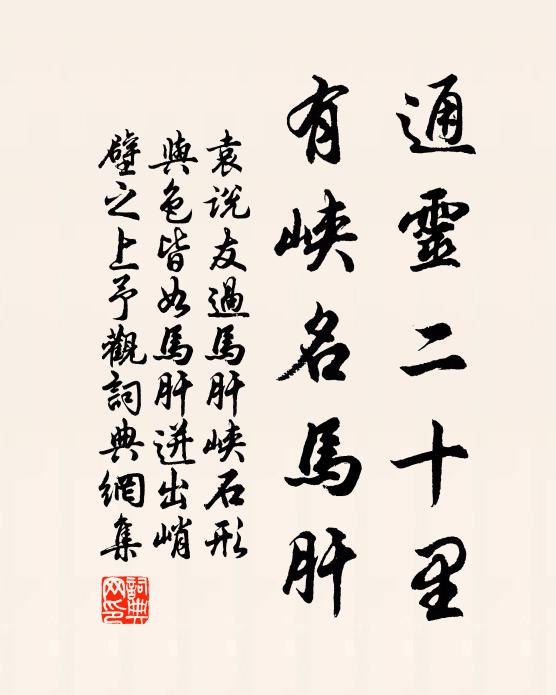 通靈二十里
有峽名馬肝
袁説友過馬肝峽石形
與色皆如馬肝迸出峭
壁之上予觀詞典網集
詞典网印